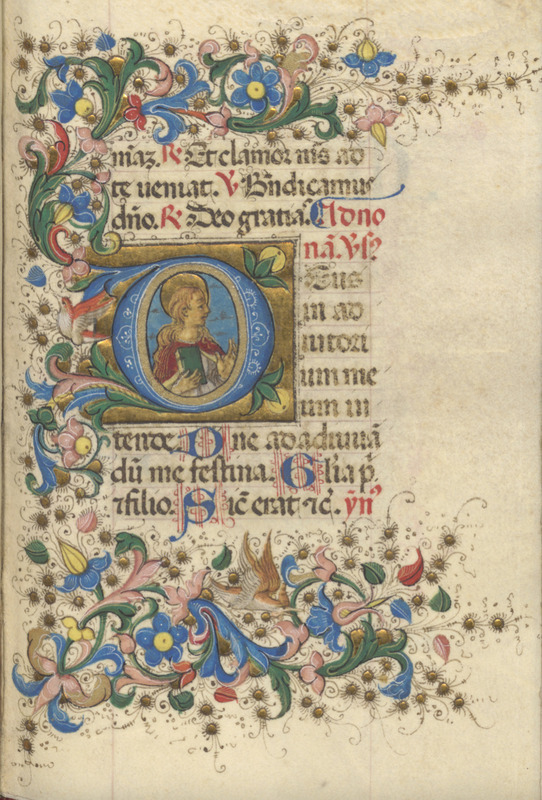 meaʒ. R Et clamor mis ad
te ueniat. V Bñdicamus
dño. R Deo gratias. Ad no
nã. Vsꝰ
Deus
in ad
iutori
um me
um in
tende. Dne ad adiuuã
dũ me festina. Glia p̃
⁊ filio. Sic̃ erat ⁊c̃. ỹnꝰ